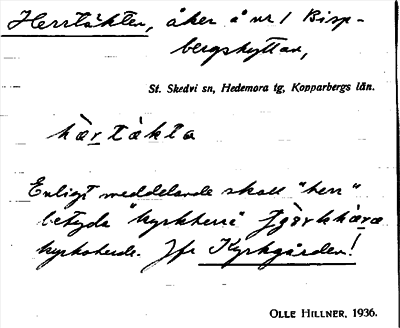 Herrtäkten, åker å nr 1 Bisp-
bergshyttan,
St. Skedvi sn, Hedemora tg, Kopparbergs län.
hæ̀r tàkta
Enligt meddelande skall "herr"
betyda "kyrkherre"
kyrkoherde. Jfr Kyrkgården!
OLLE HILLNER, 1936.